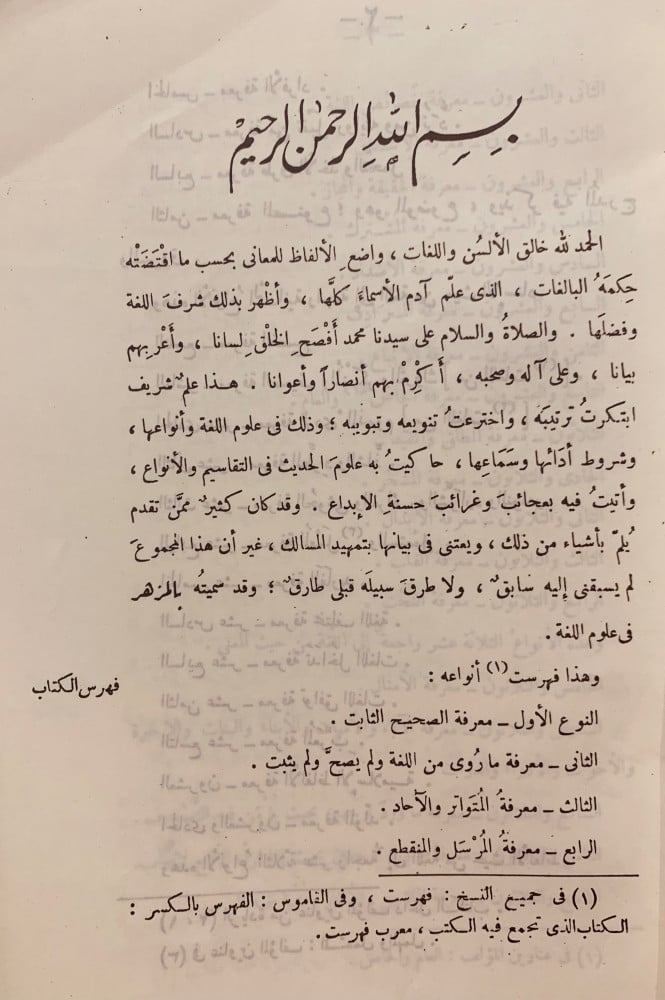 بِسِمِ اللهِ الرحمٰن الرحيمْ
الحمد لله خالق الألسُن واللغات ، واضع ِ الألفاظ للمعانى بحسب ما اقْتَضَتْه
حِكمَهُ البالغات ، الذى علّم آدم الأسماءَ كلَّها ، وأظْهر بذلك شرفَ اللغة
وفضلَها . والصلاةُ والسلام على سيدنا محمد أَفْصَح ِ الخلْق ِ لسانا ، وأَعْرَبِهم
بيانا ، وعلى آله وصحبه ، أَكْرِمْ بهم أنصاراً وأعوانا . هذا علمٌ شريف
ابتكرتُ ترتيبَه ، واخترعتُ تنويعه وتبويبه ؛ وذلك فى علوم اللغة وأنواعها ،
وشروط أدَائها وسَمَاعِها ، حاكيتُ به علومَ الحديث فى التقاسيم والأنواع ،
وأتيتُ فيه بعجائبَ وغرائبَ حسنةِ الإبداع . وقد كان كثيرٌ ممَّن تقدم
يُلمّ بأشياء من ذلك ، ويعتنى فى بيانها بتمهيد المسالك ، غير أن هذا المجموعَ
لم يسبقنى إليه سابقٌ ، ولا طرقَ سبيلَه قبلى طارقٌ ؛ وقد سميتُه بالمزهر
فى علوم اللغة .
فهرس الكتاب
وهذا فهرست(١) أنواعه :
النوع الأول ــ معرفة الصحيح الثابت .
الثانى ــ معرفة ما رُوى من اللغة ولم يصحَّ ولم يثبت .
الثالث ــ معرفةُ المُتَواتر والآحاد .
الرابع ــ معرفةُ المُرْسَل والمنقطع .
(١) فى جميع النسخ : فهرست ، وفى القاموس : الفهرس بالكسر :
الكتاب الذى تجمع فيه الكتب ، معرب فهرست .